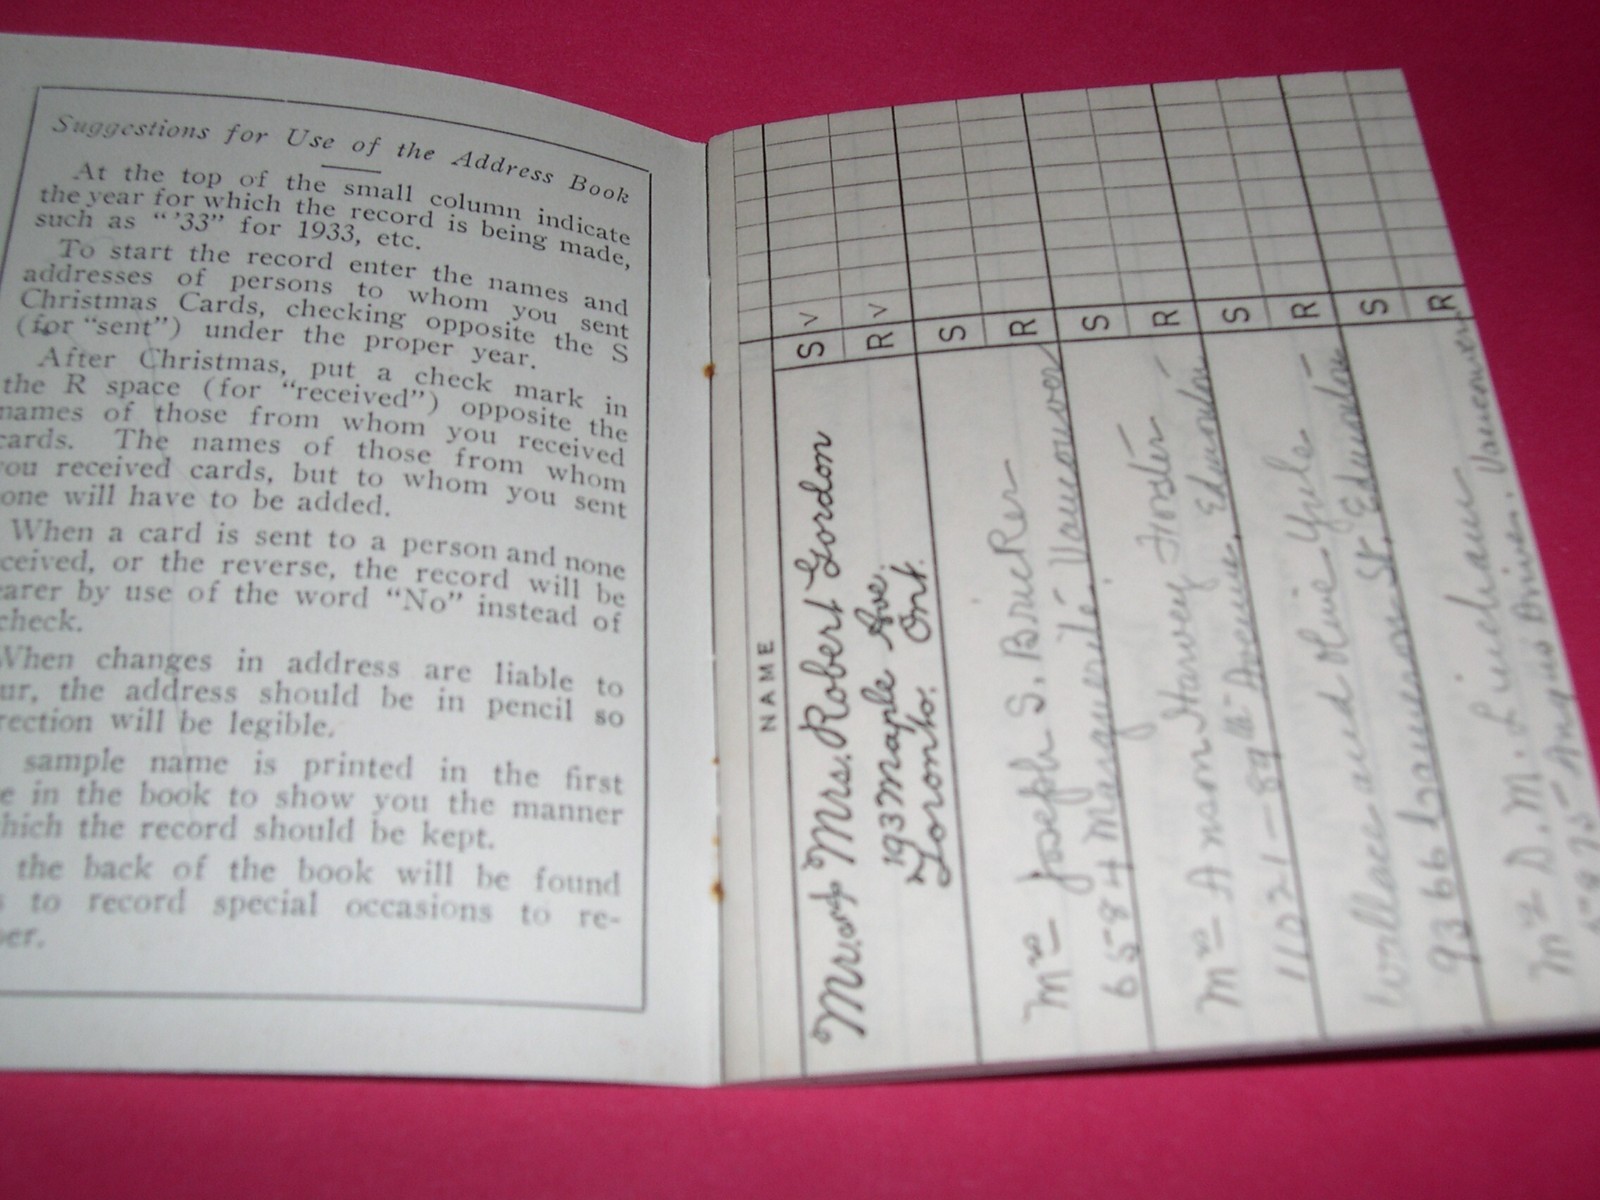 Suggestions for Use of the Address Book
At the top of the small column indicate
the year for which the record is being made,
such as “ ’33” for 1933, etc.
To start the record enter the names and
addresses of persons to whom you sent
Christmas Cards, checking opposite the S
(for “sent”) under the proper year.
After Christmas, put a check mark in
the R space (for “received”) opposite the
names of those from whom you received
cards. The names of those from whom
you received cards, but to whom you sent
one will have to be added.
When a card is sent to a person and none
ceived, or the reverse, the record will be
earer by use of the word “No” instead of
check.
When changes in address are liable to
ur, the address should be in pencil so
rection will be legible.
sample name is printed in the first
e in the book to show you the manner
hich the record should be kept.
the back of the book will be found
s to record special occasions to re-
ber.
NAME
Mr. and Mrs. Robert Gordon S v
193 Maple Ave. R v
Toronto. Ont.
S
Mrs Joseph S. Bricker R
6584 Marguerite. Vancouver
S
Mrs Anson Harvey Foster R
11021-89th Avenue, Edmonton
S
Wallace and Olive Yule R
9366 St. Edmonton
S
D. M. R
Angus Drive. Vancouver